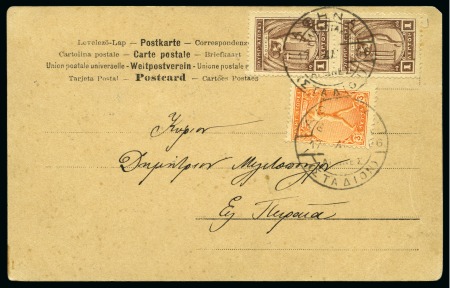 Levelező-Lap — Postkarte — Correspondenz
Cartolina postale — Carte postale — Briefkaart
Union postale universelle — Weltpostverein — Unione postale
Tarjeta Postal — Postcard — Cartões Postaes
1 1
ΑΘΗΝΑΙ
(ΣΤΑΔΙΟΝ)
Κύριον
Δημήτριον
Εις Πειραιά